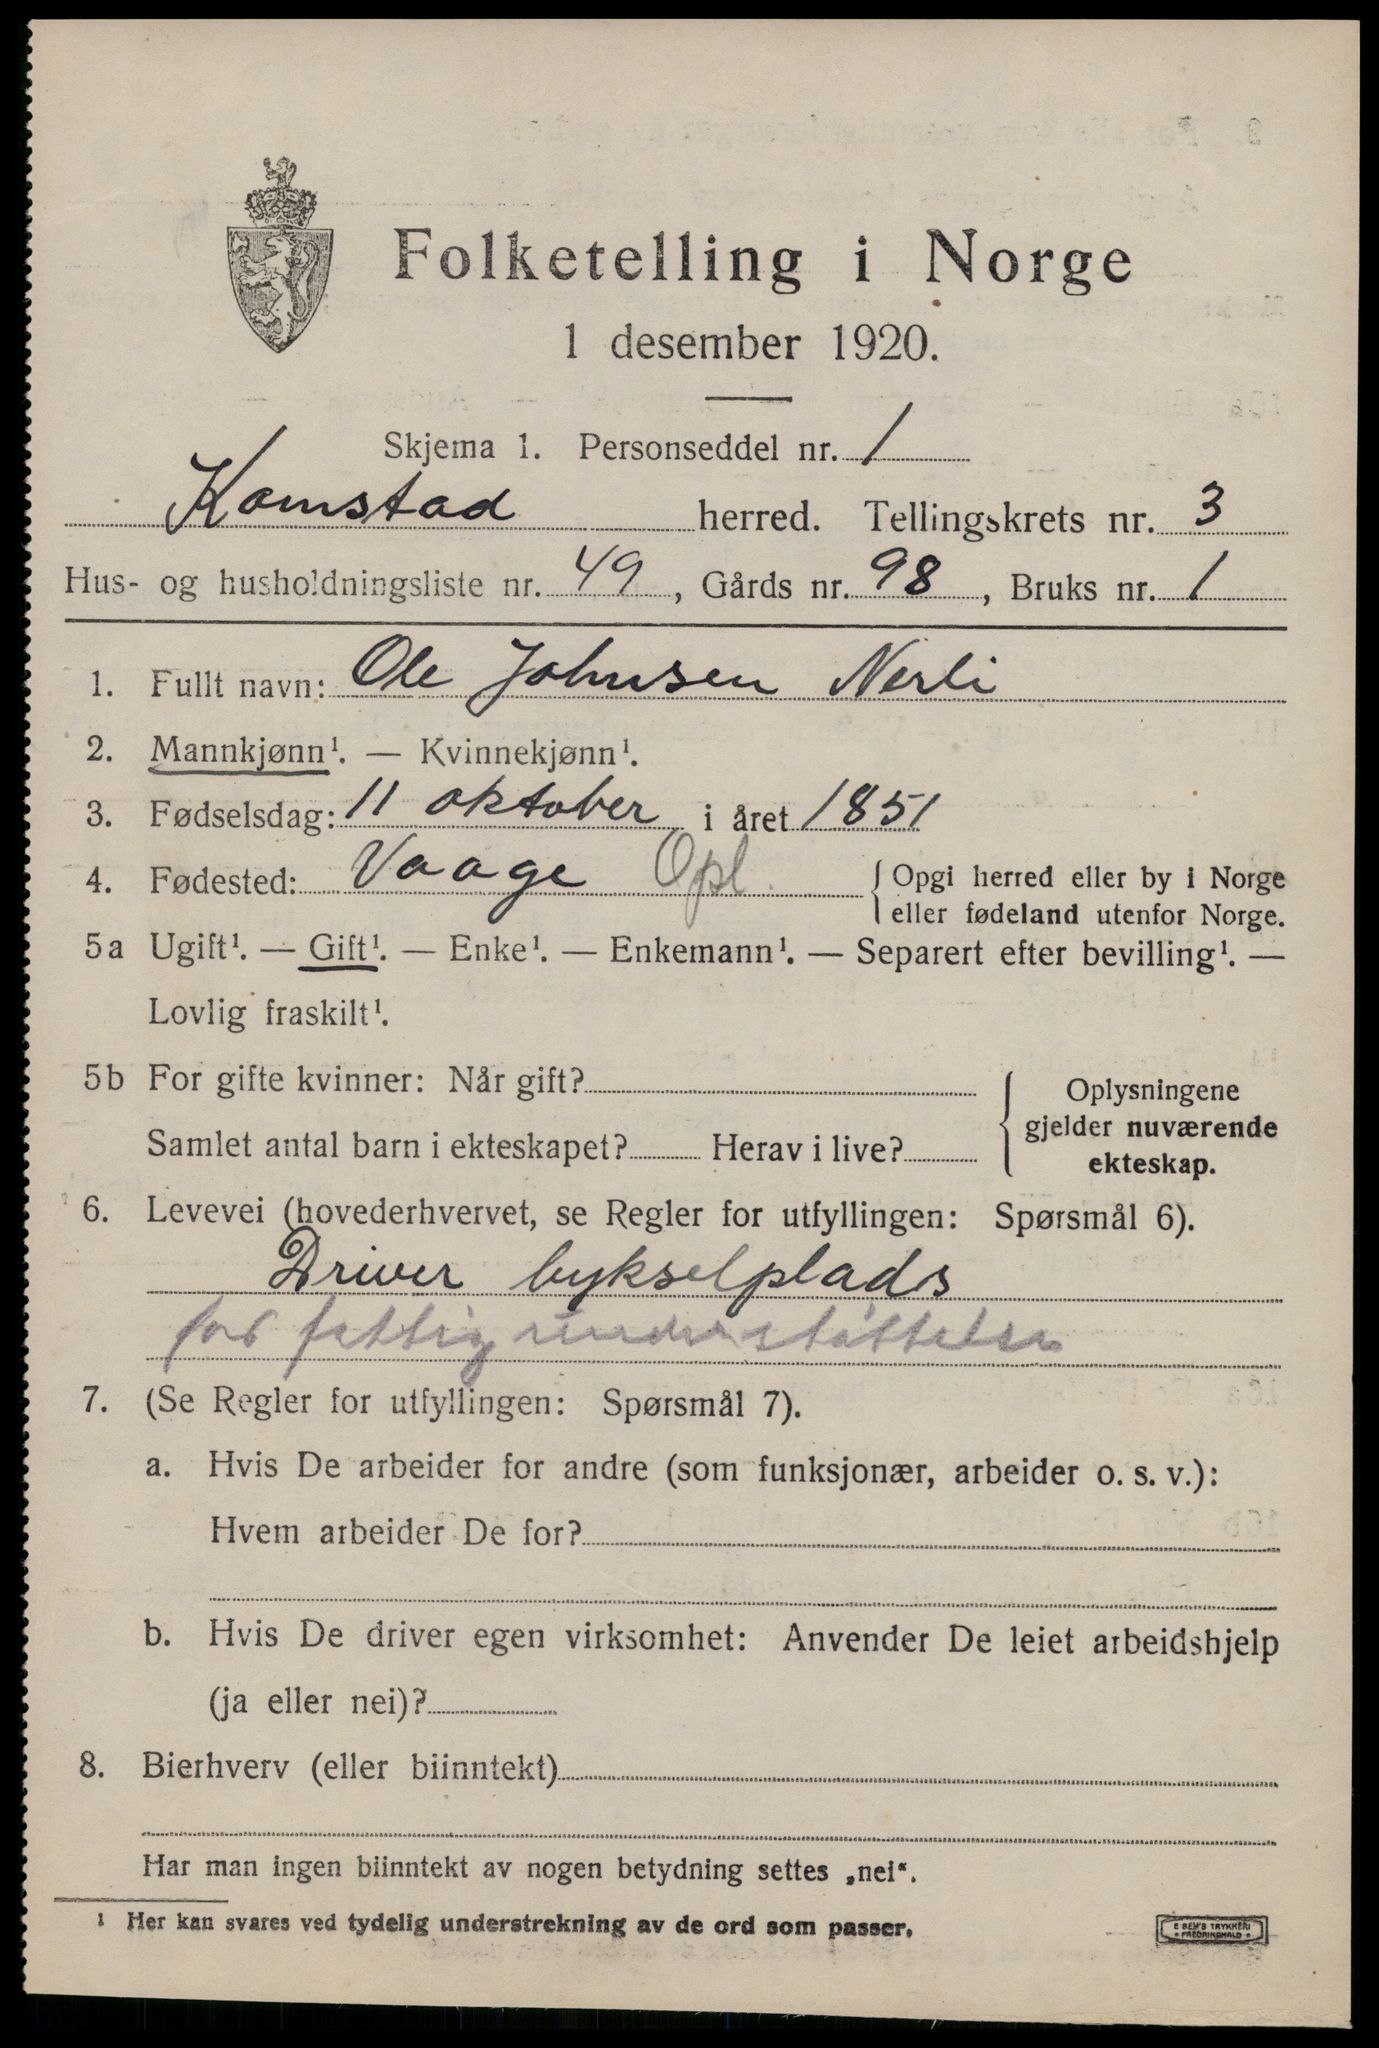 Folketelling i Norge
1 desember 1920.
Skjema 1. Personseddel nr. 1
Kornstad herred. Tellingskrets nr. 3
Hus- og husholdningsliste nr. 49, Gårds nr. 98, Bruks nr. 1
1. Fullt navn: Ole Johnsen Nerli
2. Mannkjønn¹. — Kvinnekjønn¹.
3. Fødselsdag: 11 oktober i året 1851
4. Fødested: Vaage Opl. { Opgi herred eller by i Norge
eller fødeland utenfor Norge.
5a Ugift¹. — Gift¹. — Enke¹. — Enkemann¹. — Separert efter bevilling¹. —
Lovlig fraskilt¹.
5b For gifte kvinner: Når gift? Oplysningene
gjelder nuværende
Samlet antal barn i ekteskapet? Herav i live?
ekteskap.
6. Levevei (hovederhvervet, se Regler for utfyllingen: Spørsmål 6).
Driver bykselplads
for fattigunderstøttelse
7. (Se Regler for utfyllingen: Spørsmål 7).
a. Hvis De arbeider for andre (som funksjonær, arbeider o. s. v.):
Hvem arbeider De for?
b. Hvis De driver egen virksomhet: Anvender De leiet arbeidshjelp
(ja eller nei)?
8. Bierhverv (eller biinntekt)
Har man ingen biinntekt av nogen betydning settes „nei“.
¹ Her kan svares ved tydelig understrekning av de ord som passer.
E SEM'S TRYKKERI
• FREDRIKSHALD •